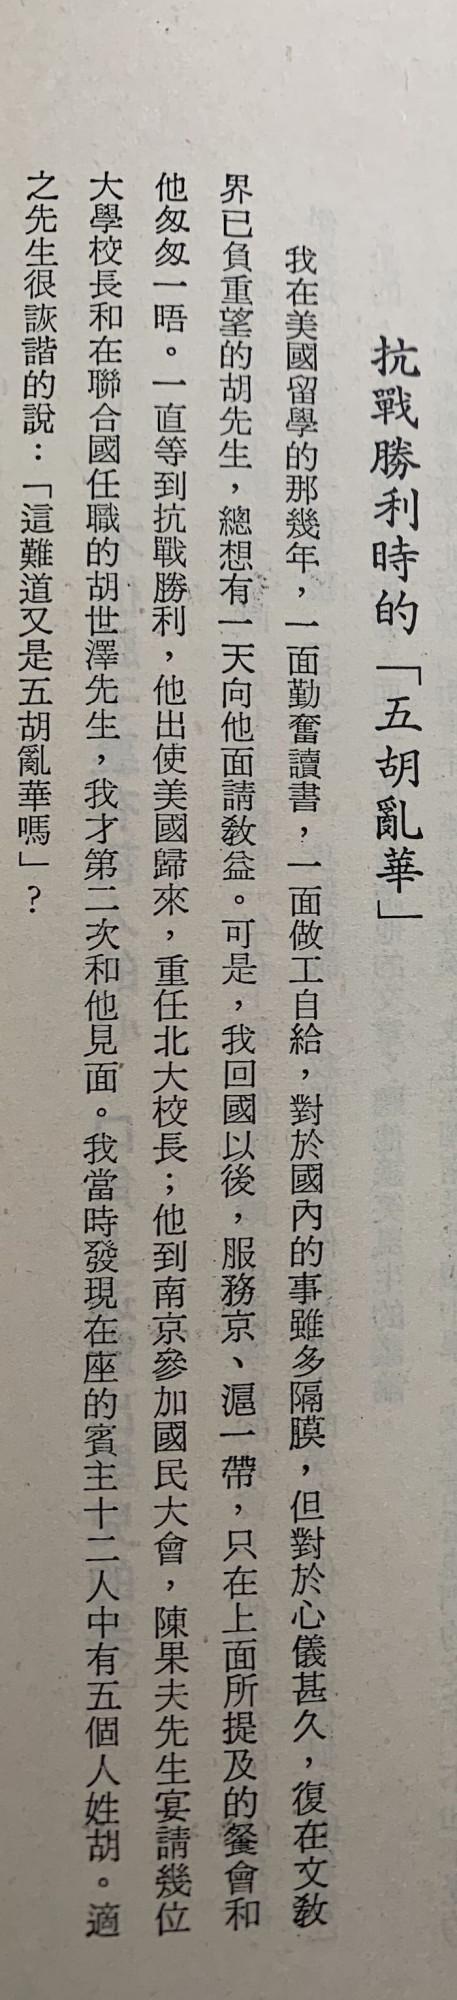 抗戰勝利時的「五胡亂華」
我在美國留學的那幾年，一面勤奮讀書，一面做工自給，對於國內的事雖多隔膜，但對於心儀甚久，復在文敎
界已負重望的胡先生，總想有一天向他面請敎益。可是，我回國以後，服務京、滬一帶，只在上面所提及的餐會和
他匆匆一晤。一直等到抗戰勝利，他出使美國歸來，重任北大校長；他到南京參加國民大會，陳果夫先生宴請幾位
大學校長和在聯合國任職的胡世澤先生，我才第二次和他見面。我當時發現在座的賓主十二人中有五個人姓胡。適
之先生很詼諧的說：「這難道又是五胡亂華嗎」？